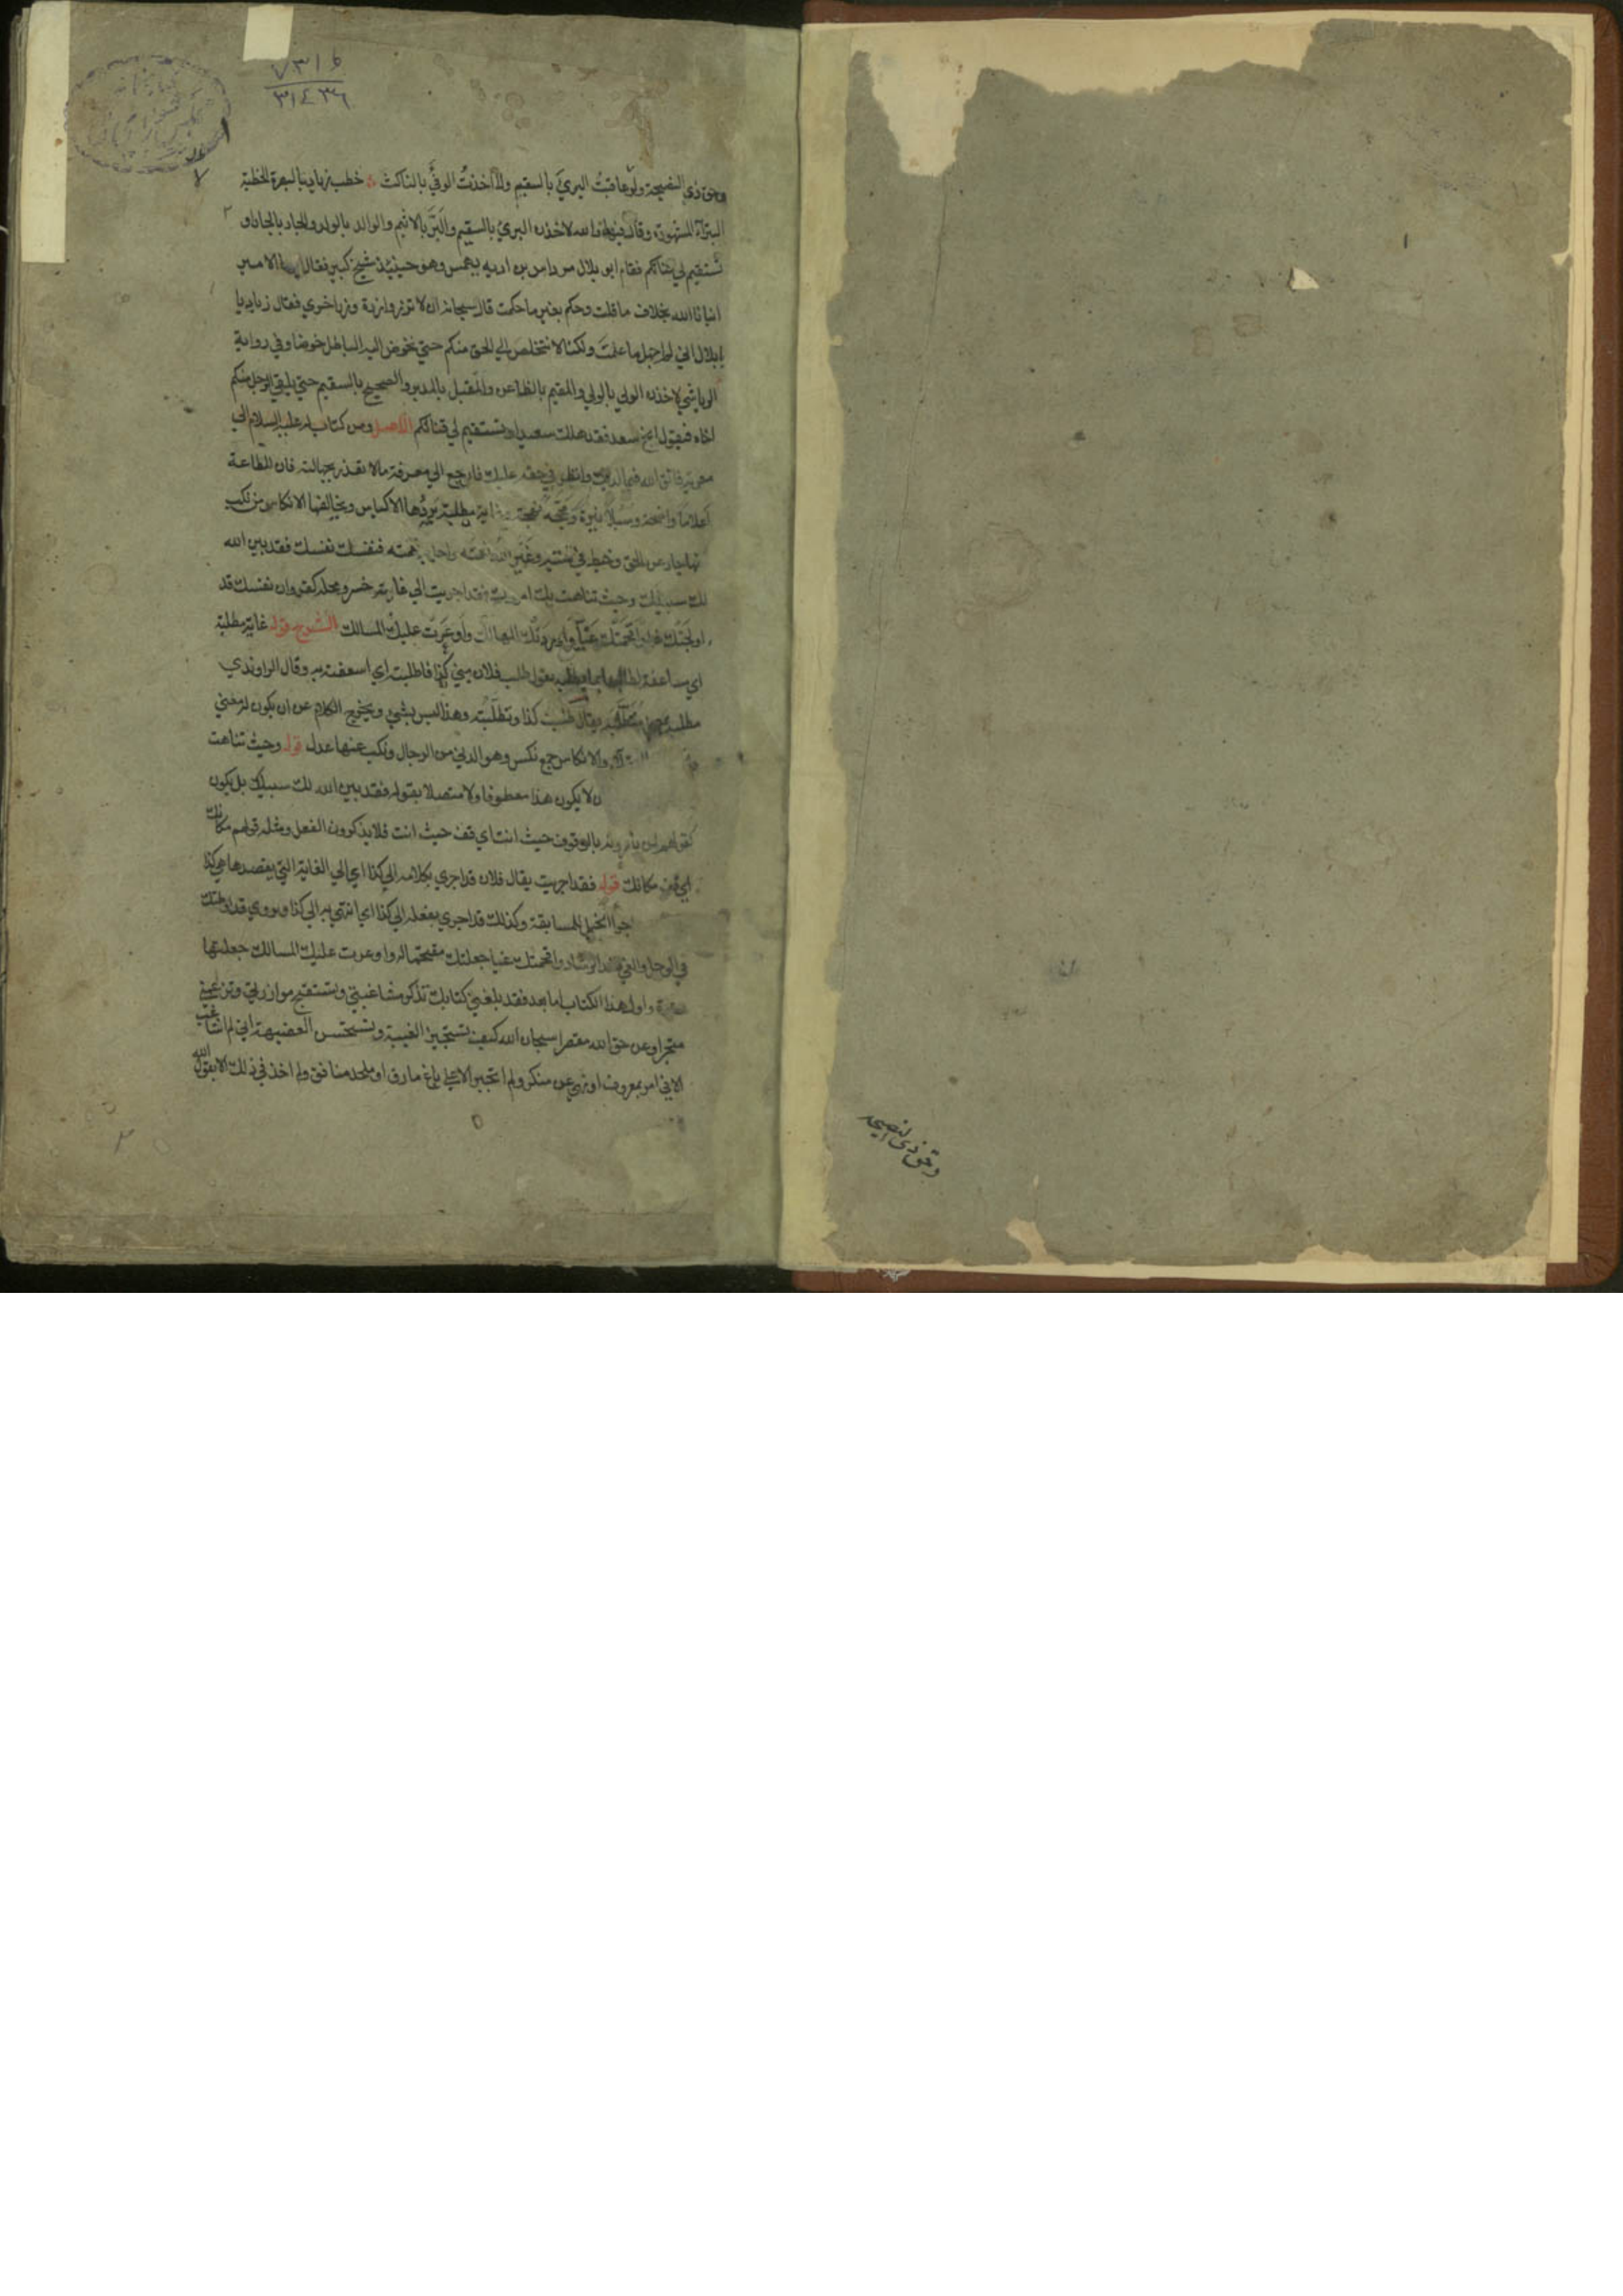 ٧٣١٥
٣١٤٣٦
وحق ذي النصيحة ولو عاقبت البريء بالسقيم ولأأخذت الوفيّ بالناكث خطب زياد بالبصرة الخطبة
البتراء المشهورة وقال فيها والله لاخذن البريء بالسقيم والبرّ بالاثيم والوالد بالولد والجار بالجار او
تستقيم لي قناتكم فقام ابو بلال مرداس بن اديه يهمس وهو حينئذ شيخ كبير فقال ايها الامير
انبانا الله بخلاف ما قلت وحكم بغير ما حكمت قال سبحانه ان لا تزر وازرة وزر اخري فقال زياد يا
ابا بلال اني لم اجهل ما علمت ولكنا لا نتخلص الي الحق منكم حتي نخوض اليه الباطل خوضا وفي رواية
الرياشي لاخذن الولي بالولي والمقيم بالظاعن والمقبل بالمدبر والصحيح بالسقيم حتي يلقي الرجل منكم
اخاه فيقول انج سعد فقد هلك سعيد او تستقيم لي قناتكم الاصل ومن كتاب له عليه السلام الي
معوية فاتق الله فيما لديك وانظر في حقه عليك فارجع الي معرفة ما لا تعذر بجهالته فان للطاعة
اعلاما واضحة وسبلا نيرة ومحجة نهجة وغاية مطلبة يردها الاكياس ويخالفها الانكاس من نكب
عنها جار عن الحق وخبط في التيه وغير الله نعمته واحل به نقمته فنفسك نفسك فقد بين الله
لك سبيلك وحيث تناهت بك امورك فقد اجريت الي غاية خسر ومحلة كفر وان نفسك قد
اولجتك شرا واقحمتك غيا واوردتك المهالك واوعرت عليك المسالك الشرح قوله غاية مطلبة
اي مساعفة لطالبها بما يطلبه يقول طلب فلان مني كذا فاطلبته اي اسعفته به وقال الراوندي
مطلبة بمعني متطلبة يقال طلبت كذا وتطلبته وهذا ليس بشيء ويخرج الكلام عن ان يكون له معني
والانكاس جمع نكس وهو الدني من الرجال ونكب عنها عدل قوله وحيث تناهت
ان لا يكون هذا معطوفا ولا متصلا بقوله فقد بين الله لك سبيلك بل يكون
كقولهم لمن يأمرونه بالوقوف حيث انت اي قف حيث انت فلا يذكرون الفعل ومثله قولهم مكانك
اي قف مكانك قوله فقد اجريت يقال فلان قد اجري بكلامه الي كذا اي الي الغاية التي يقصدها هي كذا
اجرا الخيل للمسابقة وكذلك قد اجري بفعله الي كذا اي انتهي به الي كذا ويروي قد اوحلتك
في الوحل والغي ضد الرشاد واقحمتك غيا جعلتك مقتحما له واوعرت عليك المسالك جعلتها
وعرة واول هذا الكتاب اما بعد فقد بلغني كتابك تذكر مشاغبتي وتستقبح موازرتي وتزعمني
متجبرا وعن حق الله مقصرا سبحان الله كيف تستجيز الغيبة وتستحسن العضيهة اني لم اشاغب
الا في امر بمعروف او نهي عن منكر ولم اتجبر الا علي باغ مارق او ملحد منافق ولم اخذ في ذلك الا بقول الله
وحق ذي النصيحه